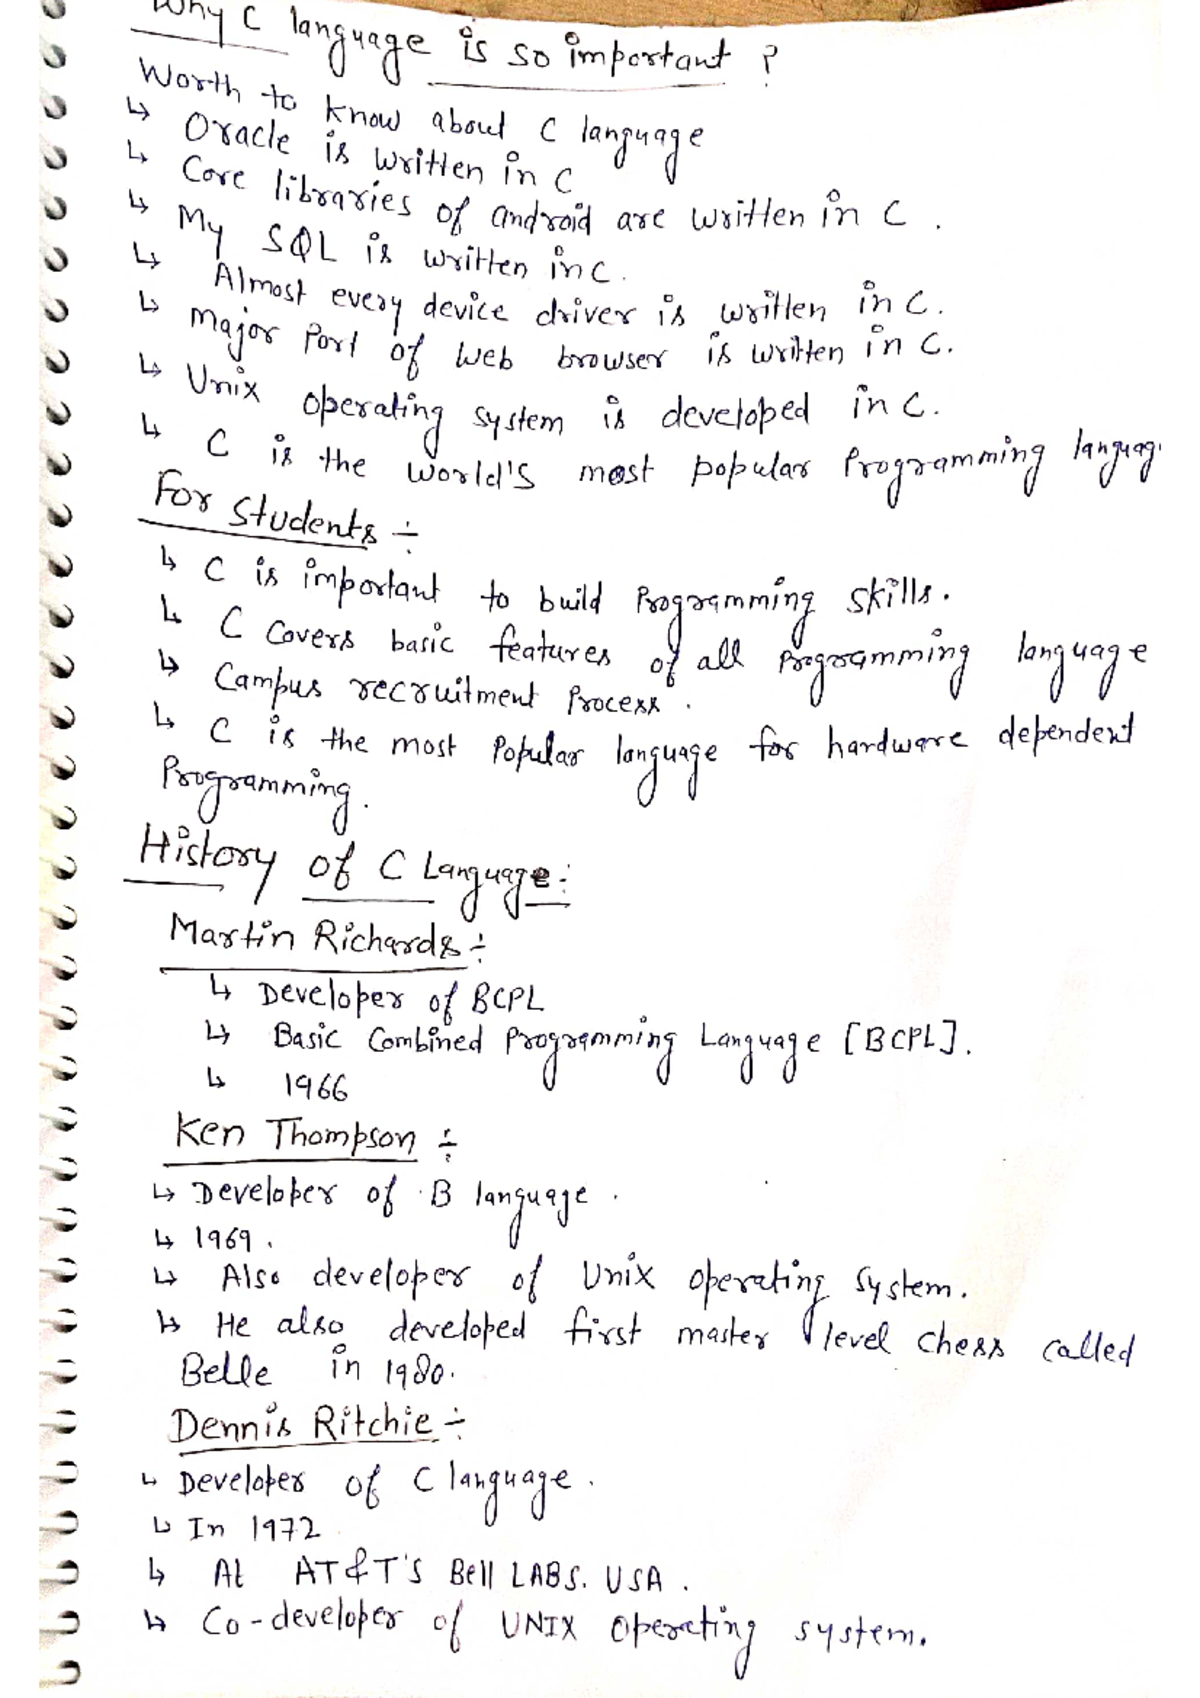 Why C language is so important ?
Worth to know about C language
↳ Oracle is written in C
↳ Core libraries of android are written in C .
↳ My SQL is written in C .
↳ Almost every device driver is written in C .
↳ Major Part of Web browser is written in C .
↳ Unix operating system is developed in C .
↳ C is the world's most popular Programming languag
For Students ÷
↳ C is important to build Programming skills .
↳ C covers basic features of all Programming language
↳ Campus recruitment Process .
↳ C is the most Popular language for hardware dependent
Programming .
History of C Language :
Martin Richards ÷
↳ Developer of BCPL
↳ Basic Combined Programming Language [BCPL] .
↳ 1966
Ken Thompson ÷
↳ Developer of B language .
↳ 1969 .
↳ Also developer of Unix operating System .
↳ He also developed first master level chess called
Belle in 1980 .
Dennis Ritchie ÷
↳ Developer of C language .
↳ In 1972
↳ At AT&T'S Bell LABS. USA .
↳ Co-developer of UNIX operating system .